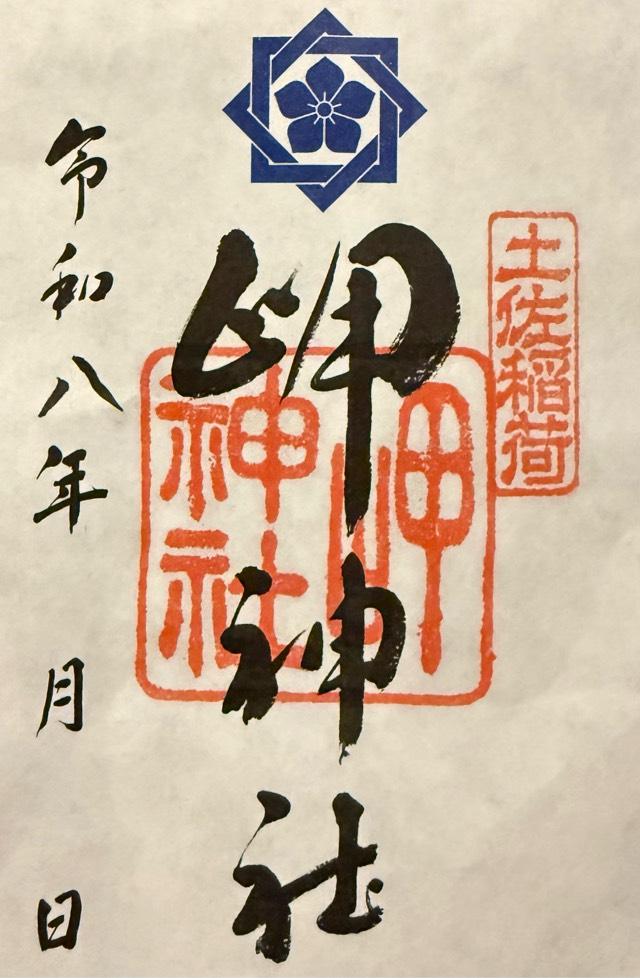 土佐稲荷
岬神社
岬
神社
令和八年 月 日